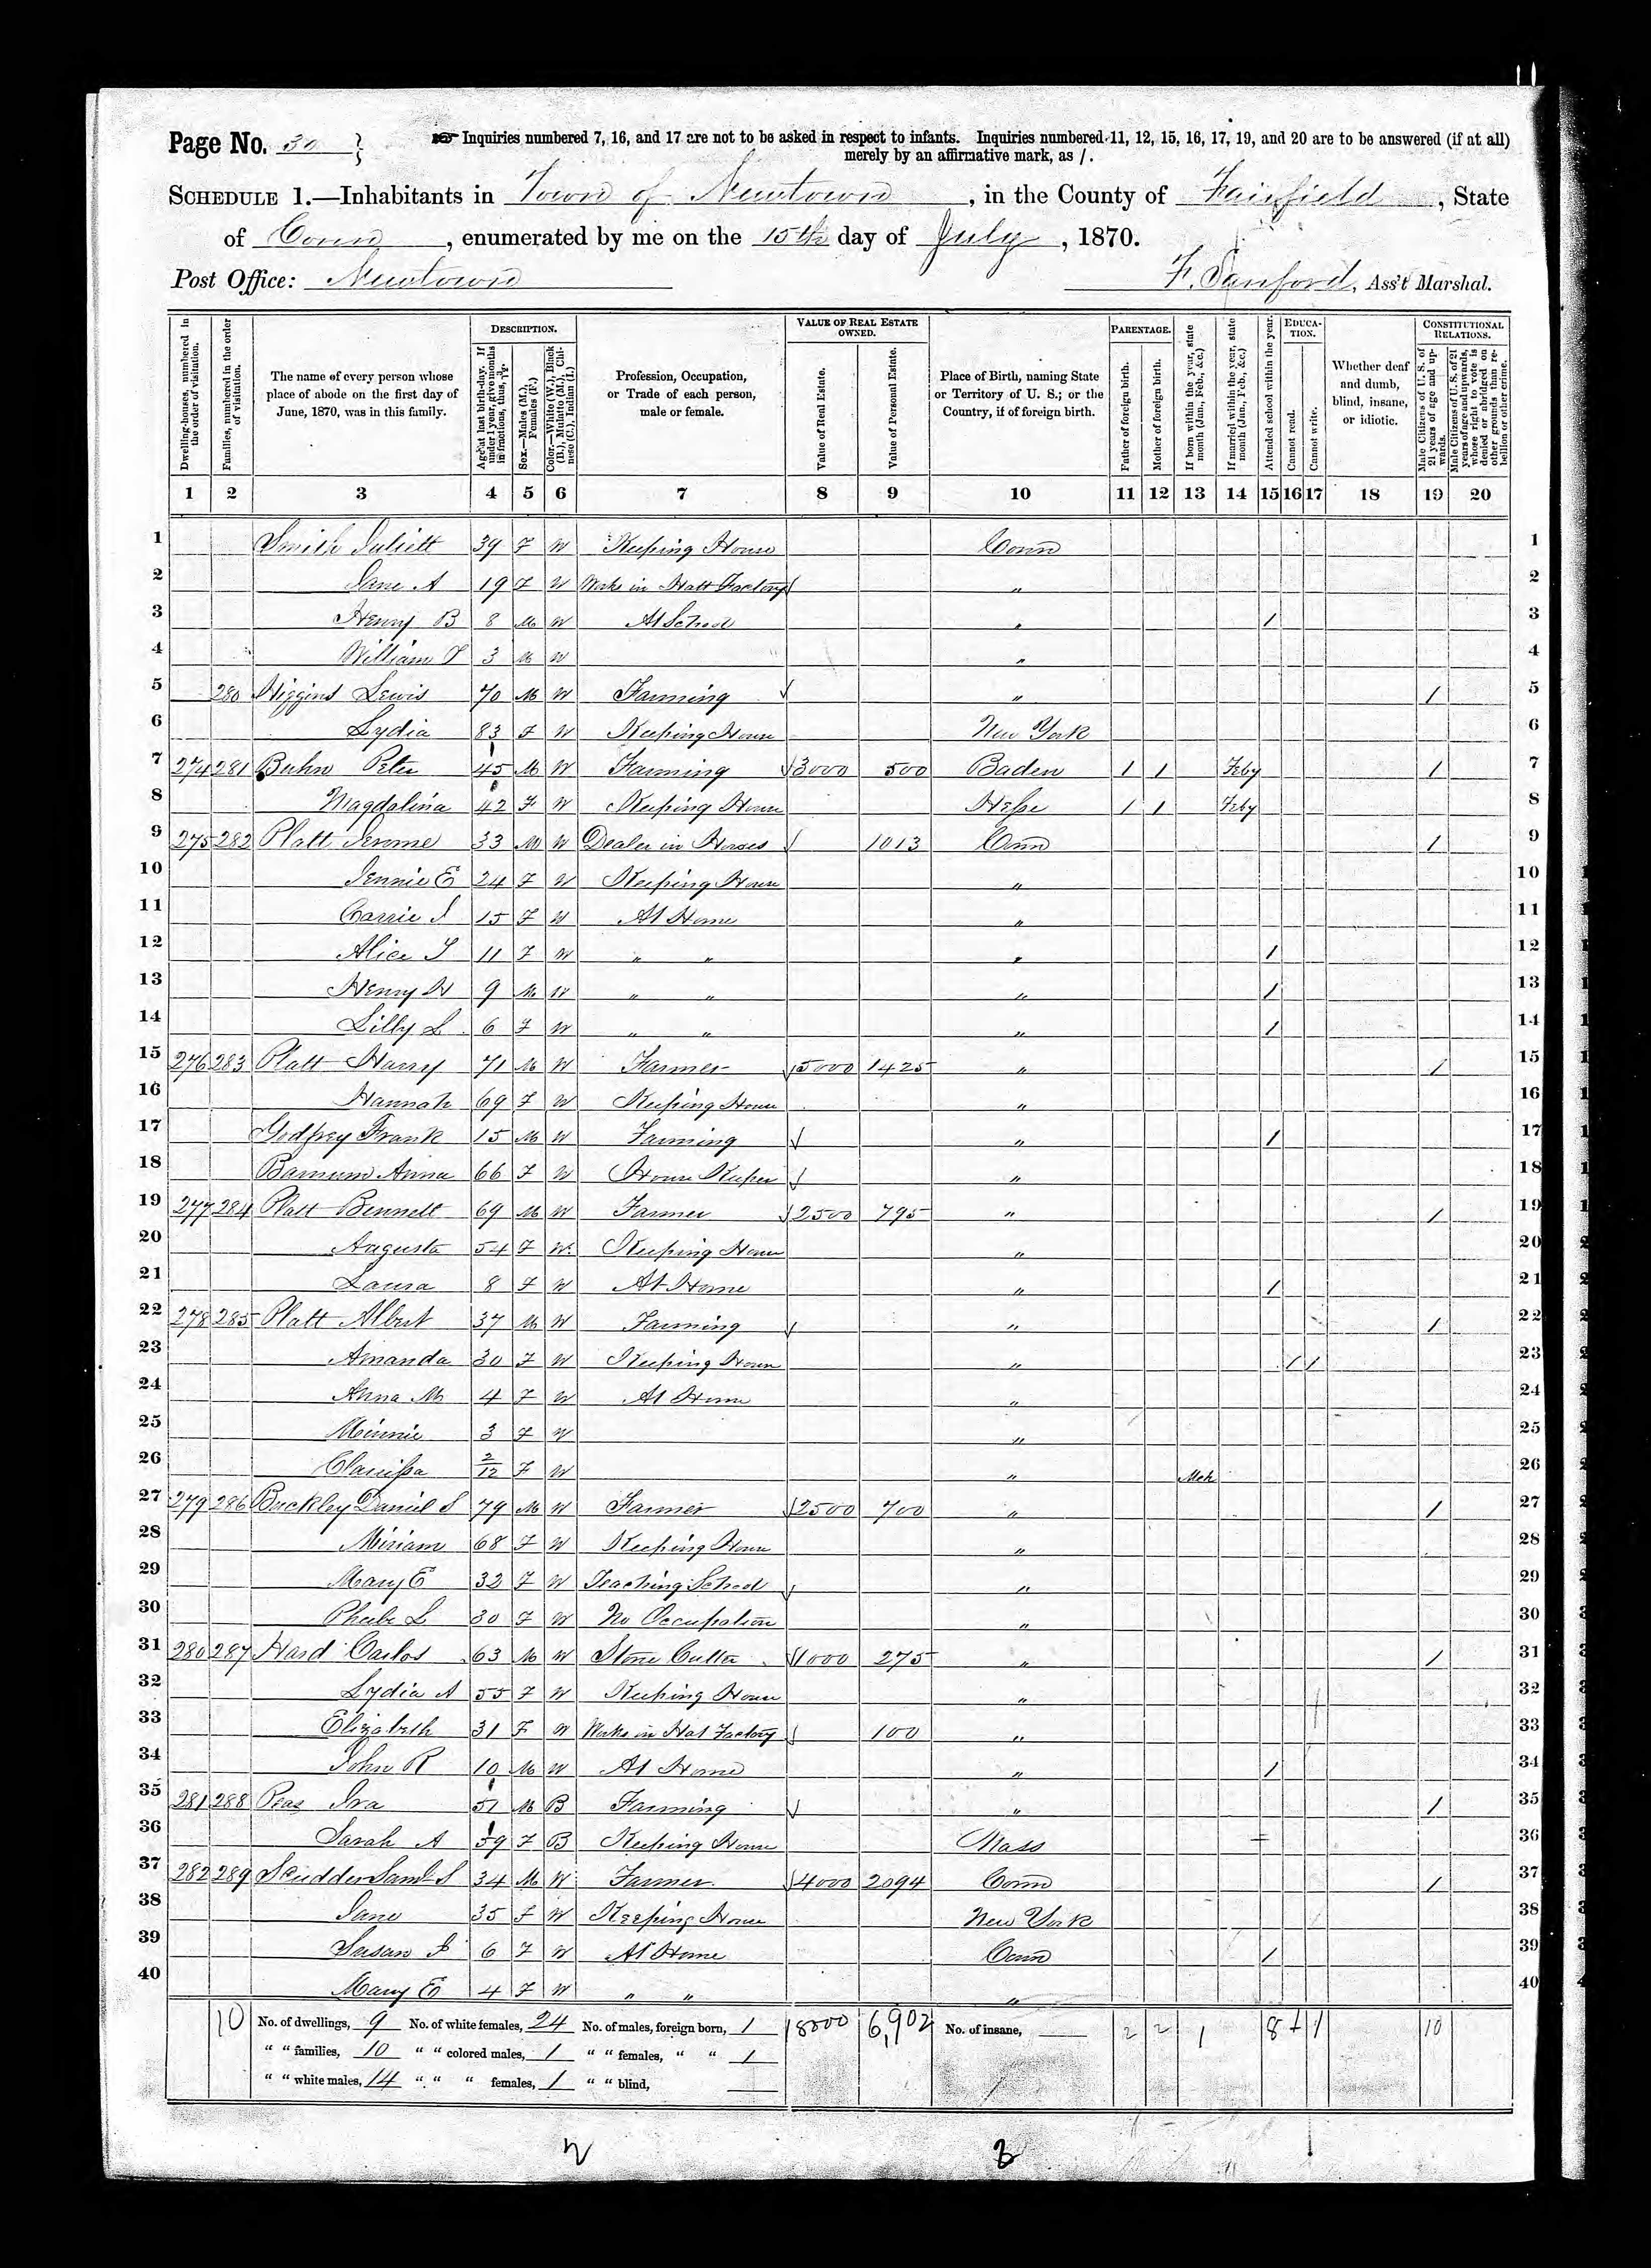 Page No. 30
Inquiries numbered 7, 16, and 17 are not to be asked in respect to infants. Inquiries numbered 11, 12, 15, 16, 17, 19, and 20 are to be answered (if at all)
merely by an affirmative mark, as /.
SCHEDULE 1.—Inhabitants in Town of Newtown, in the County of Fairfield, State
of Conn, enumerated by me on the 15th day of July, 1870.
Post Office: Newtown
F. Sanford, Ass't Marshal.
Dwelling-houses, numbered in the order of visitation.
Families, numbered in the order of visitation.
The name of every person whose place of abode on the first day of June, 1870, was in this family.
DESCRIPTION.
Age at last birth-day. If under 1 year, give months in fractions, thus, 3/12.
Sex.—Males (M.), Females (F.)
Color.—White (W.), Black (B.), Mulatto (M.), Chinese (C.), Indian (I.)
Profession, Occupation, or Trade of each person, male or female.
VALUE OF REAL ESTATE OWNED.
Value of Real Estate.
Value of Personal Estate.
Place of Birth, naming State or Territory of U. S.; or the Country, if of foreign birth.
PARENTAGE.
Father of foreign birth.
Mother of foreign birth.
If born within the year, state month (Jan., Feb., &c.)
If married within the year, state month (Jan., Feb., &c.)
Attended school within the year.
EDUCATION.
Cannot read.
Cannot write.
Whether deaf and dumb, blind, insane, or idiotic.
CONSTITUTIONAL RELATIONS.
Male Citizens of U. S. of 21 years of age and upwards.
Male Citizens of U. S. of 21 years of age and upwards, whose right to vote is denied or abridged on other grounds than rebellion or other crime.
1 2 3 4 5 6 7 8 9 10 11 12 13 14 15 16 17 18 19 20
1 Smith Juliett 39 F W Keeping House Conn 1
2 Jane A 19 F W Works in Hatt Factory " 2
3 Henry B 8 M W At School " / 3
4 William 3 M W " 4
5 280 Higgins Lewis 70 M W Farming " / 5
6 Lydia 83 F W Keeping House New York 6
7 274 281 Buhn Peter 45 M W Farming 3000 500 Baden / / Feby / 7
8 Magdalina 42 F W Keeping House Hesse / / Feby 8
9 275 282 Platt Jerome 33 M W Dealer in Horses 1013 Conn / 9
10 Jennie E 24 F W Keeping House " 10
11 Carrie 15 F W At Home " 11
12 Alice 11 F W " " " / 12
13 Henry H 9 M W " " " / 13
14 Lilly L 6 F W " " " / 14
15 276 283 Platt Harry 71 M W Farmer 5000 1425 " / 15
16 Hannah 69 F W Keeping House " 16
17 Godfrey Frank 15 M W Farming " / 17
18 Barnum Anna 66 F W House Keeper " 18
19 277 284 Platt Bennett 69 M W Farmer 2500 795 " / 19
20 Augusta 54 F W Keeping House " 20
21 Laura 8 F W At Home " / 21
22 278 285 Platt Albert 37 M W Farming " / 22
23 Amanda 30 F W Keeping House " / / 23
24 Anna M 4 F W At Home " 24
25 Minnie 3 F W " 25
26 Clarissa 2/12 F W " Mch 26
27 279 286 Buckley Daniel S 79 M W Farmer 2500 700 " / 27
28 Miriam 68 F W Keeping House " 28
29 Mary E 32 F W Teaching School " 29
30 Phebe L 30 F W No Occupation " 30
31 280 287 Hard Carlos 63 M W Stone Cutter 1000 275 " / 31
32 Lydia A 55 F W Keeping House " 32
33 Elizabeth 31 F W Works in Hat Factory 100 " 33
34 John R 10 M W At Home " / 34
35 281 288 Peas Ira 51 M B Farming " / 35
36 Sarah A 59 F B Keeping House Mass 36
37 282 289 Scudder Saml S 34 M W Farmer 4000 2094 Conn / 37
38 Jane 35 F W Keeping House New York 38
39 Susan 6 F W At Home Conn / 39
40 Mary E 4 F W " " " 40
10 No. of dwellings, 9 No. of white females, 24 No. of males, foreign born, 1 18000 6,902 No. of insane, 2 2 1 8 1 10
" " families, 10 " " colored males, 1 " " females, " " 1
" " white males, 14 " " " females, 1 " " blind,